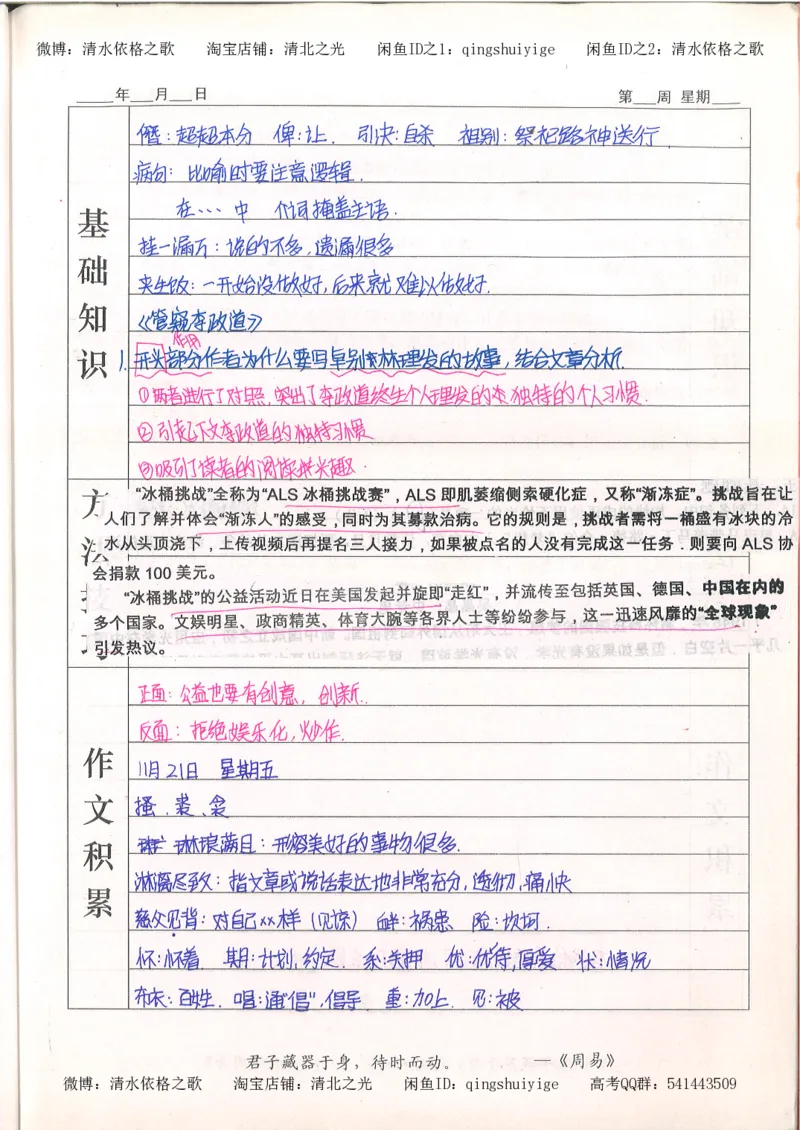 微博：清水依格之歌 淘宝店铺：清北之光 闲鱼ID之1：qingshuiyige 闲鱼ID之2：清水依格之歌
年 月 日 第 周 星期
基础知识
僭：超越本分 俾：让． 引决：自杀 祖别：祭祀路神送行
病句：比喻时要注意逻辑．
在…中 介词掩盖主语．
挂一漏万：说的不多，遗漏很多
夹生饭：一开始没做好，后来就难以做好．
《管窥李政道》
作用
1.开头部分作者为什么要写早别林理发的故事，结合文章分析．
①两者进行了对照，突出了李政道终生个人理发的独特的个人习惯．
②引起下文李政道的独特习惯
③吸引了读者的阅读兴趣．
方法技
“冰桶挑战”全称为“ALS 冰桶挑战赛”，ALS 即肌萎缩侧索硬化症，又称“渐冻症”。挑战旨在让
人们了解并体会“渐冻人”的感受，同时为其募款治病。它的规则是，挑战者需将一桶盛有冰块的冷
水从头顶浇下，上传视频后再提名三人接力，如果被点名的人没有完成这一任务．则要向 ALS 协
会捐款 100 美元。
“冰桶挑战”的公益活动近日在美国发起并旋即“走红”，并流传至包括英国、德国、中国在内的
多个国家。文娱明星、政商精英、体育大腕等各界人士等纷纷参与，这一迅速风靡的“全球现象”
引发热议。
作文积累
正面：公益也要有创意，创新．
反面：拒绝娱乐化，炒作．
11月21日 星期五
搔．裘、衾
琳琅满目：形容美好的事物很多．
淋漓尽致：指文章或说话表达地非常充分，透彻，痛快
慈父见背：对自己xx样（见谅） 衅：祸患 险：坎坷．
怀：怀着 期：计划，约定． 系：关押 优：优待，厚爱 状：情况
布衣：百姓． 唱：通“倡”，倡导 重：加上． 见：被
君子藏器于身，待时而动。 —《周易》
微博：清水依格之歌 淘宝店铺：清北之光 闲鱼ID：qingshuiyige 高考QQ群：541443509